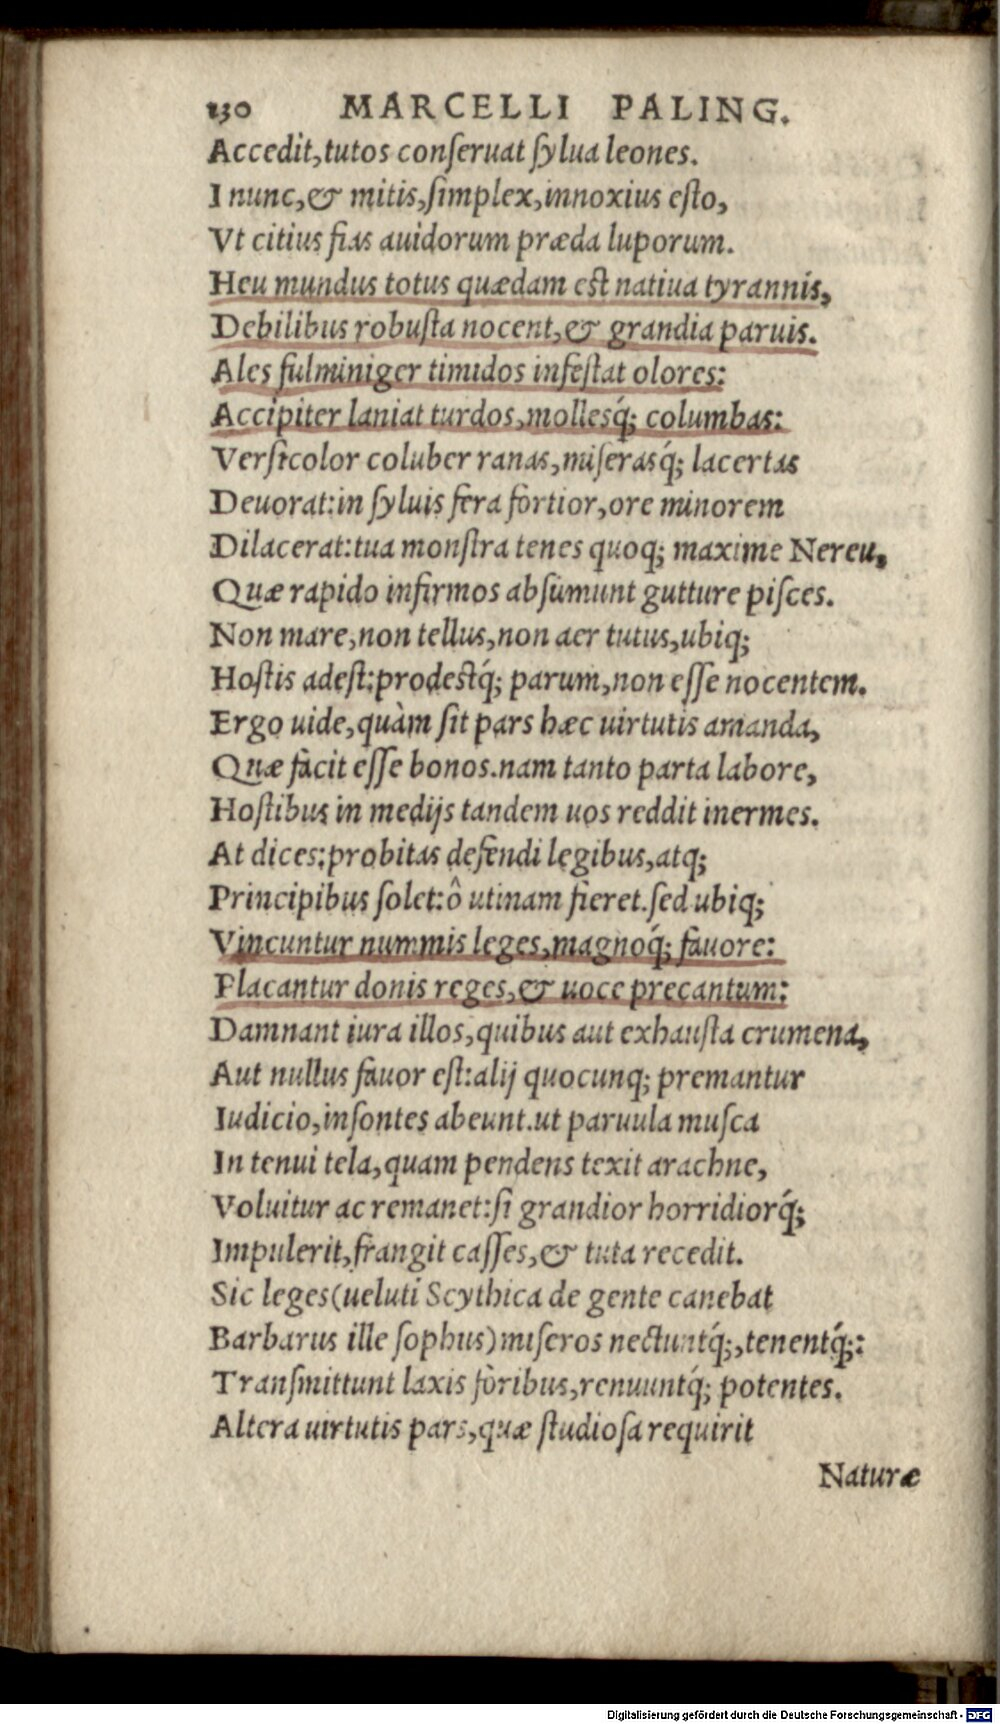 130 MARCELLI PALING.
Accedit, tutos conſeruat ſylua leones.
I nunc, & mitis, ſimplex, innoxius eſto,
Vt citius fias auidorum præda luporum.
Heu mundus totus quædam est natiua tyrannis,
Debilibus robuſta nocent, & grandia paruis.
Ales fulminiger timidos infeſtat olores:
Accipiter laniat turdos, mollesq́; columbas:
Verſicolor coluber ranas, miſerasq́; lacertas
Deuorat: in ſyluis fera fortior, ore minorem
Dilacerat: tua monſtra tenes quoq; maxime Nereu,
Quæ rapido infirmos abſumunt gutture piſces.
Non mare, non tellus, non aer tutus, ubiq;
Hoſtis adeſt: prodestq́; parum, non eſſe nocentem.
Ergo uide, quàm ſit pars hæc uirtutis amanda,
Quæ facit eſſe bonos. nam tanto parta labore,
Hoſtibus in medijs tandem uos reddit inermes.
At dices: probitas defendi legibus, atq;
Principibus ſolet: ô utinam fieret. ſed ubiq;
Vincuntur nummis leges, magnoq́; fauore:
Placantur donis reges, & uoce precantum:
Damnant iura illos, quibus aut exhauſta crumena,
Aut nullus fauor eſt: alij quocunq; premantur
Iudicio, inſontes abeunt. ut paruula muſca
In tenui tela, quam pendens texit arachne,
Voluitur ac remanet: ſi grandior horridiorq́;
Impulerit, frangit caſſes, & tuta recedit.
Sic leges (ueluti Scythica de gente canebat
Barbarus ille ſophus) miſeros nectuntq́;, tenentq́;:
Tranſmittunt laxis foribus, renuuntq́; potentes.
Altera uirtutis pars, quæ ſtudioſa requirit
Naturæ
Digitalisierung gefördert durch die Deutsche Forschungsgemeinschaft - DFG